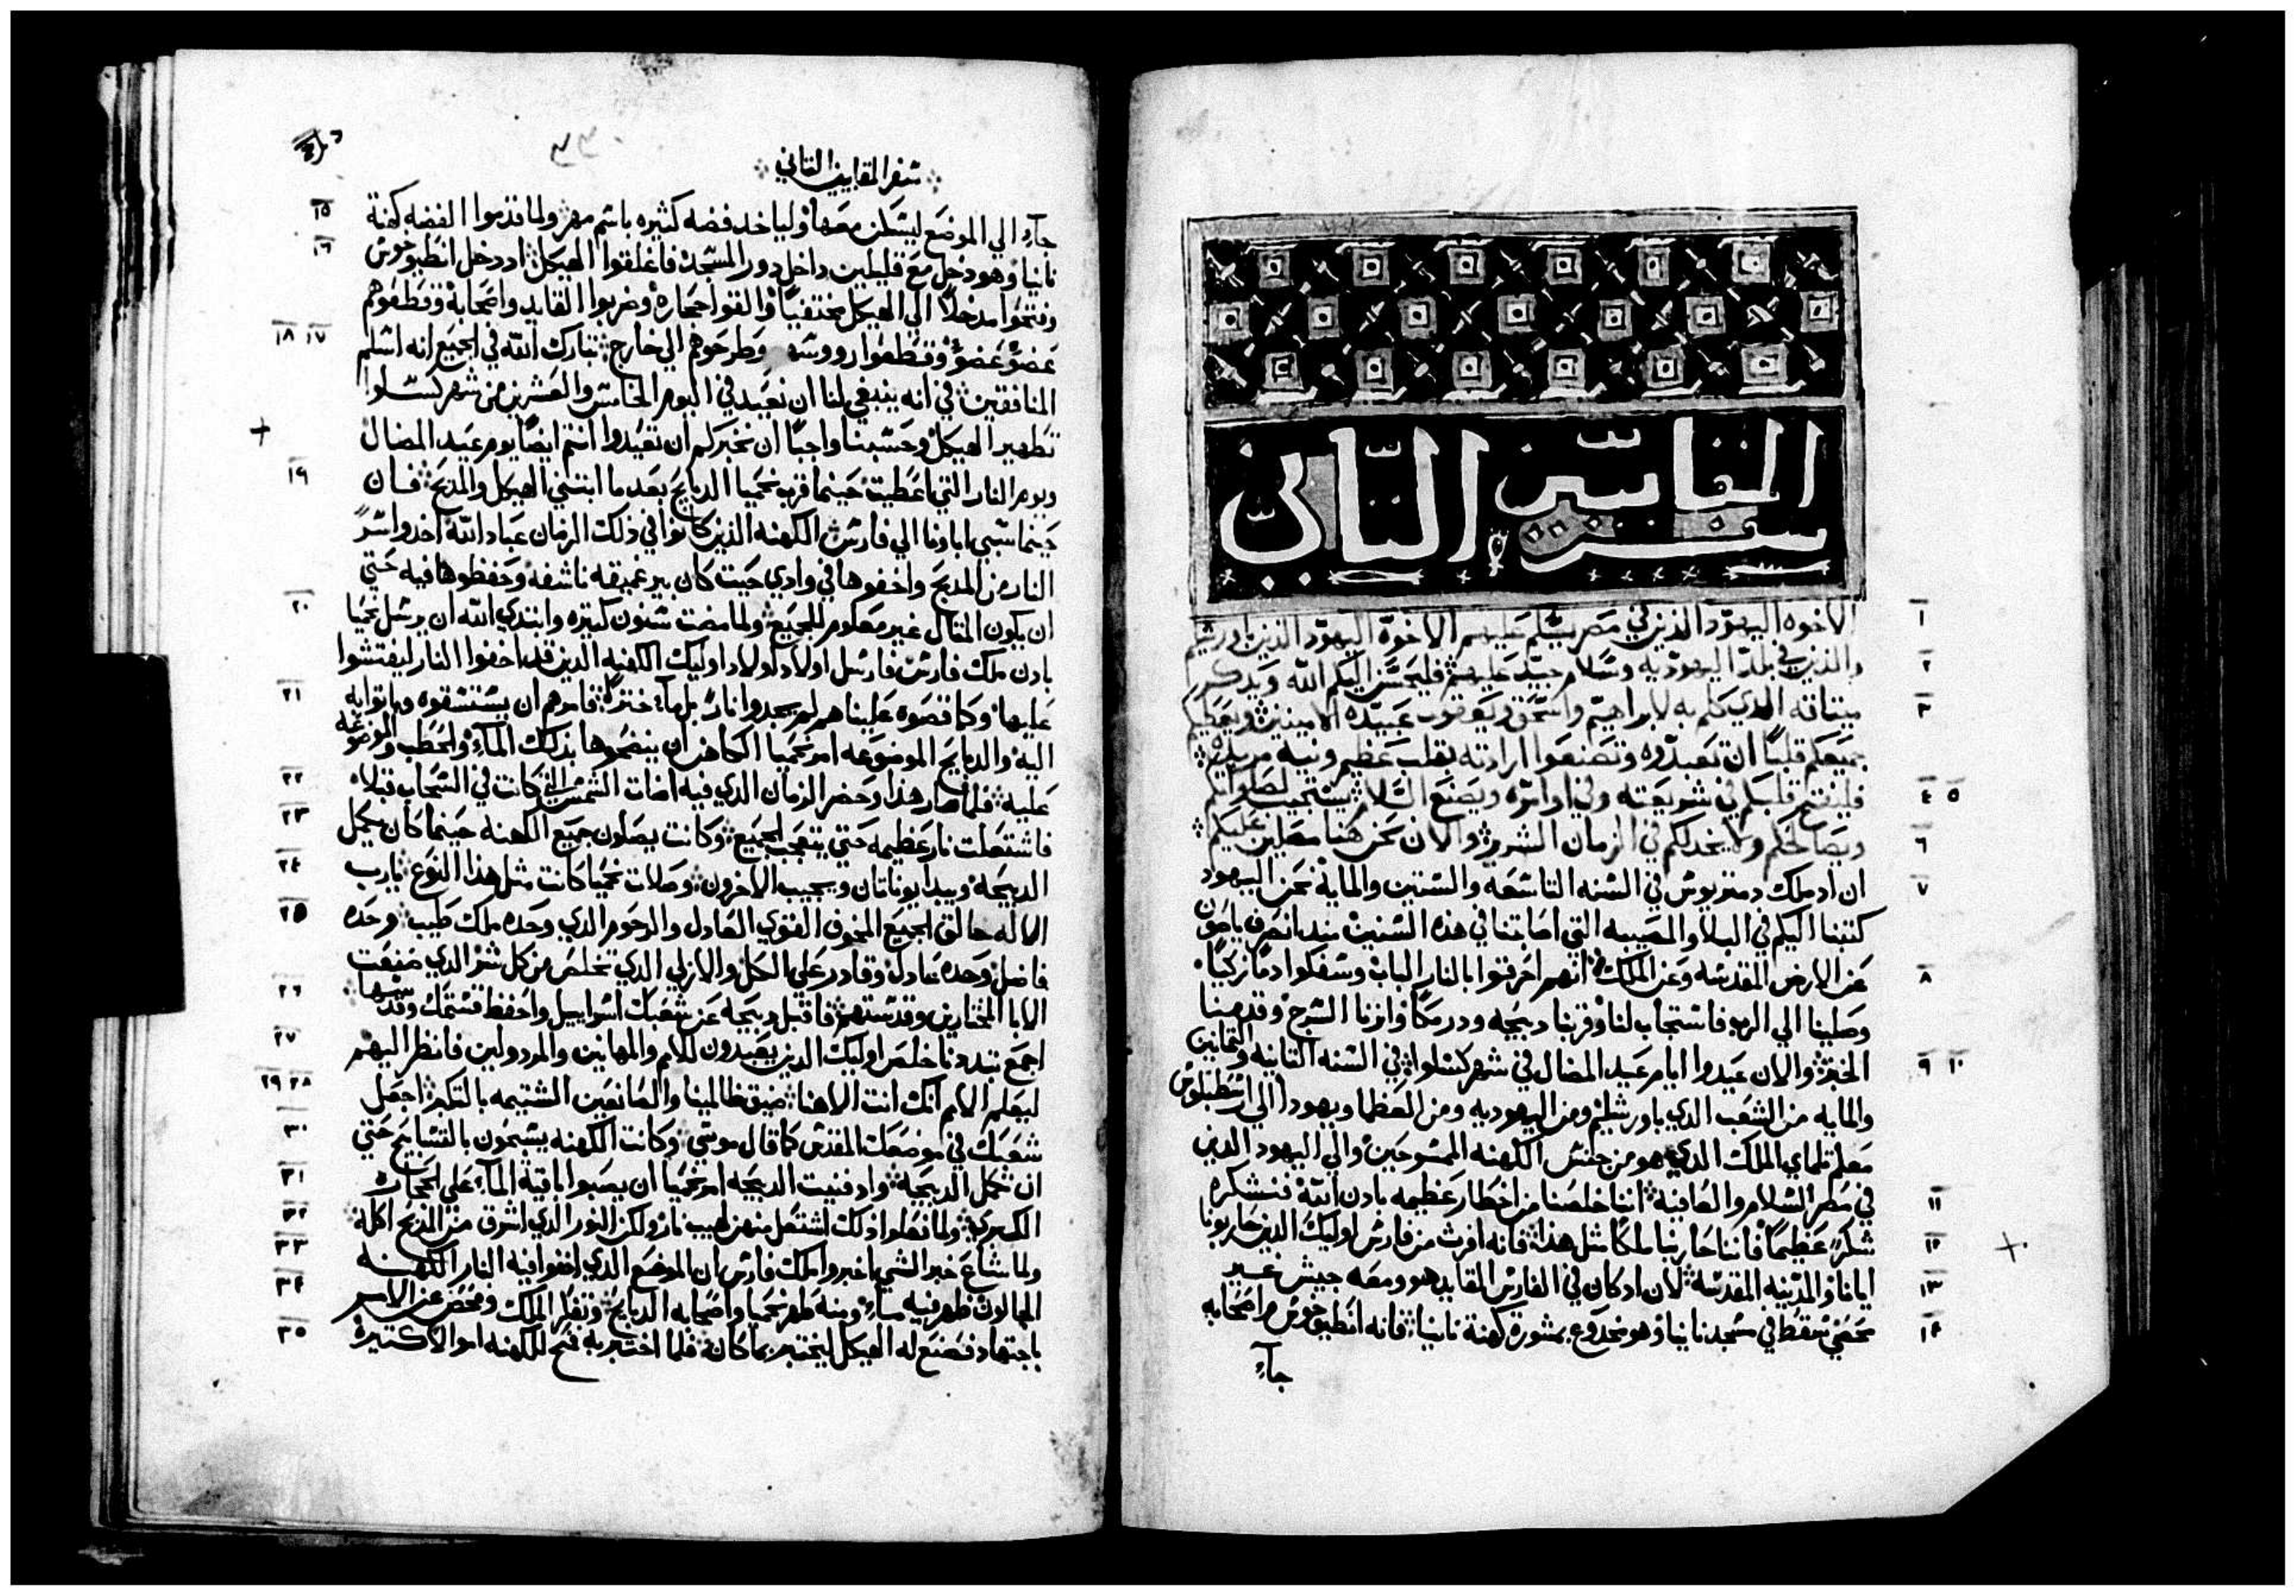 سفر المقابيين الثاني
الاخوه اليهود الذين في مصر يسلم عليهم الاخوة اليهود الذين باورشليم
والذين في بلد اليهوديه وسلام جيد عليهم فليحسن اليكم الله ويذكر
ميثاقه الدي كلم به لابراهيم واسحق ويعقوب عبيده الامينين ويعطيكم
جميعكم قلبًا ان تعبدوه وتصنعوا ارادته بقلب عظيم ونية مريده
فليفتح قلبكم في شريعته وفي اوامره ويصنع السلام يستجيب لصلواتكم
ويصالحكم ولا يخدلكم في الزمان الشرير والان نحن هنا مصليين عليكم
ان اد ملك دمتريوس في السنه التاسعه والستين والمايه نحن اليهود
كتبنا اليكم في البلا والمصيبه التي اصابتنا في هذه السنين منذ انصرف ياصون
عن الارض المقدسه وعن الملك انهم احرقوا بالنار الباب وسفكوا دمًا زكيًا
وصلينا الي الرب فاستجاب لنا وقربنا دبيحه ودرمكًا واوزنا السرج وقدمنا
الخبز والان عيدوا ايام عيد المضال في شهر كسلوا في السنه التانيه والتمانين
والمايه من الشعب الدي باورشليم ومن اليهوديه ومن العظما ويهودا الي ارسطبلوس
معلم تلماي الملك الدي هو من جنس الكهنه الممسوحين والي اليهود الدين
في مصر السلام والعافيه اننا خلصنا من اخطار عظيمه بادن الله فنشكره
شكرًا عظيمًا فاننا حاربنا ملكًا مثل هذا فانه افرث من فارس اوليك الدين حاربونا
ايانا والمدينه المقدسه لان اد كان في الفارس القايد هو ومعه جيش غير
محصي سقط في مسجد نانيا وهو مخدوع بمشورة كهنة نانيا فانه انطيوخوس واصحابه
جآء
سفر المقابيين التاني
٣٣٠
جآء الي الموضع ليسكن معها وليا خد فضه كثيره باسم مهر ولما قدموا الفضه كهنة
نانيا وهو دخل مع قليلين داخل دور المسجد فاغلقوا الهيكل اد دخل انطيوخوس
وفتحوا مدخلاً الي الهيكل مختفيًا والقوا حجاره وضربوا القايد واصحابه وقطعوهم
عضوً عضوً وقطعوا رووسهم وطرحوهم الي خارج تبارك الله في الجميع انه اسلم
المنافقين في انه ينبغي لنا ان نعيد في اليوم الخامس والعشرين من شهر كسلوا
تطهير الهيكل وحسبنا واجبًا ان نخبركم ان تعيدوا انتم ايضًا يوم عيد المضال
ويوم النار التي اعطيت حينما قرب نحميا الدبايح بعد ما ابتني الهيكل والمدبح فان
حينما سبي اباونا الي فارس الكهنه الذين كانوا في ذلك الزمان عباد الله اخدوا سرً
النار من المدبح واخفوها في وادي حيت كان بير عميقه ناشفه وحفظوها فيه حتي
ان يكون المقال غير معلوم للجميع ولما مضت سنون كتيره وابتدي الله ان يرسل نحميا
بادن ملك فارس فارسل اولاد اولاد اوليك الكهنه الدين قد اخفوا النار ليفتشوا
عليها وكما قصوه علينا هم لم يجدوا نارً بل مآء خترً فامرهم ان يستسقوه وياتوا به
اليه والدبايح الموضوعه امر نحميا الكاهن ان ينضحوها بذلك المآء والحطب والموضوعه
عليه فلما صار هدا وحضر الزمان الدي فيه اضات الشمس التي كانت في السحاب قبلاً
فاشتعلت نار عظيمه حتي يتعجب الجميع وكانت يصلون جميع الكهنه حينما كان يكمل
الدبيحه ويبدا يوناتان ويجيب الاخرون وصلات نحميا كانت مثل هذا النوع يا رب
الاله خالق الجميع المخوف القوي العادل والرحوم الدي وحده ملك طيب وحده
فاضل وحده عادل وقادر علي الكل والازلي الدي تخلص من كل شر الدي صنعت
الابا المختارين وقدستهم فاقبل دبيحه عن شعبك اسراييل واحفظ قسمك وقدسها
اجمع تبددنا خلص اوليك الدين يعبدون للامم والمهانين والمردولين فانظر اليهم
ليعلم الامم انك انت الاهنا ضيق ظالمينا والصانعين الشتيمه بالتكبر اجعل
شعبك في موضعك المقدس كما قال موسي وكانت الكهنه يسبحون بالتسابيح حتي
ان تكمل الدبيحة واد فنيت الدبيحه امر نحميا ان يصبوا باقية المآء علي الحجاره
الكبري ولما فعلوا دلك اشتعل منهن لهيب نار ولكن النور الدي اشرق من المدبح اكله
ولما شاع خبر الشي اخبروا ملك فارس ان الموضع الدي اخفوا فيه النار الكهنه
الجالون ظهر فيه مآء ومنه طهر نحميا واصحابه الدبايح وتفكر الملك وفحص عن الامر
باجتهاد فصنع له الهيكل ليختبر بما كان فلما اختبر به فتح للكهنه اموالاً كتيرة